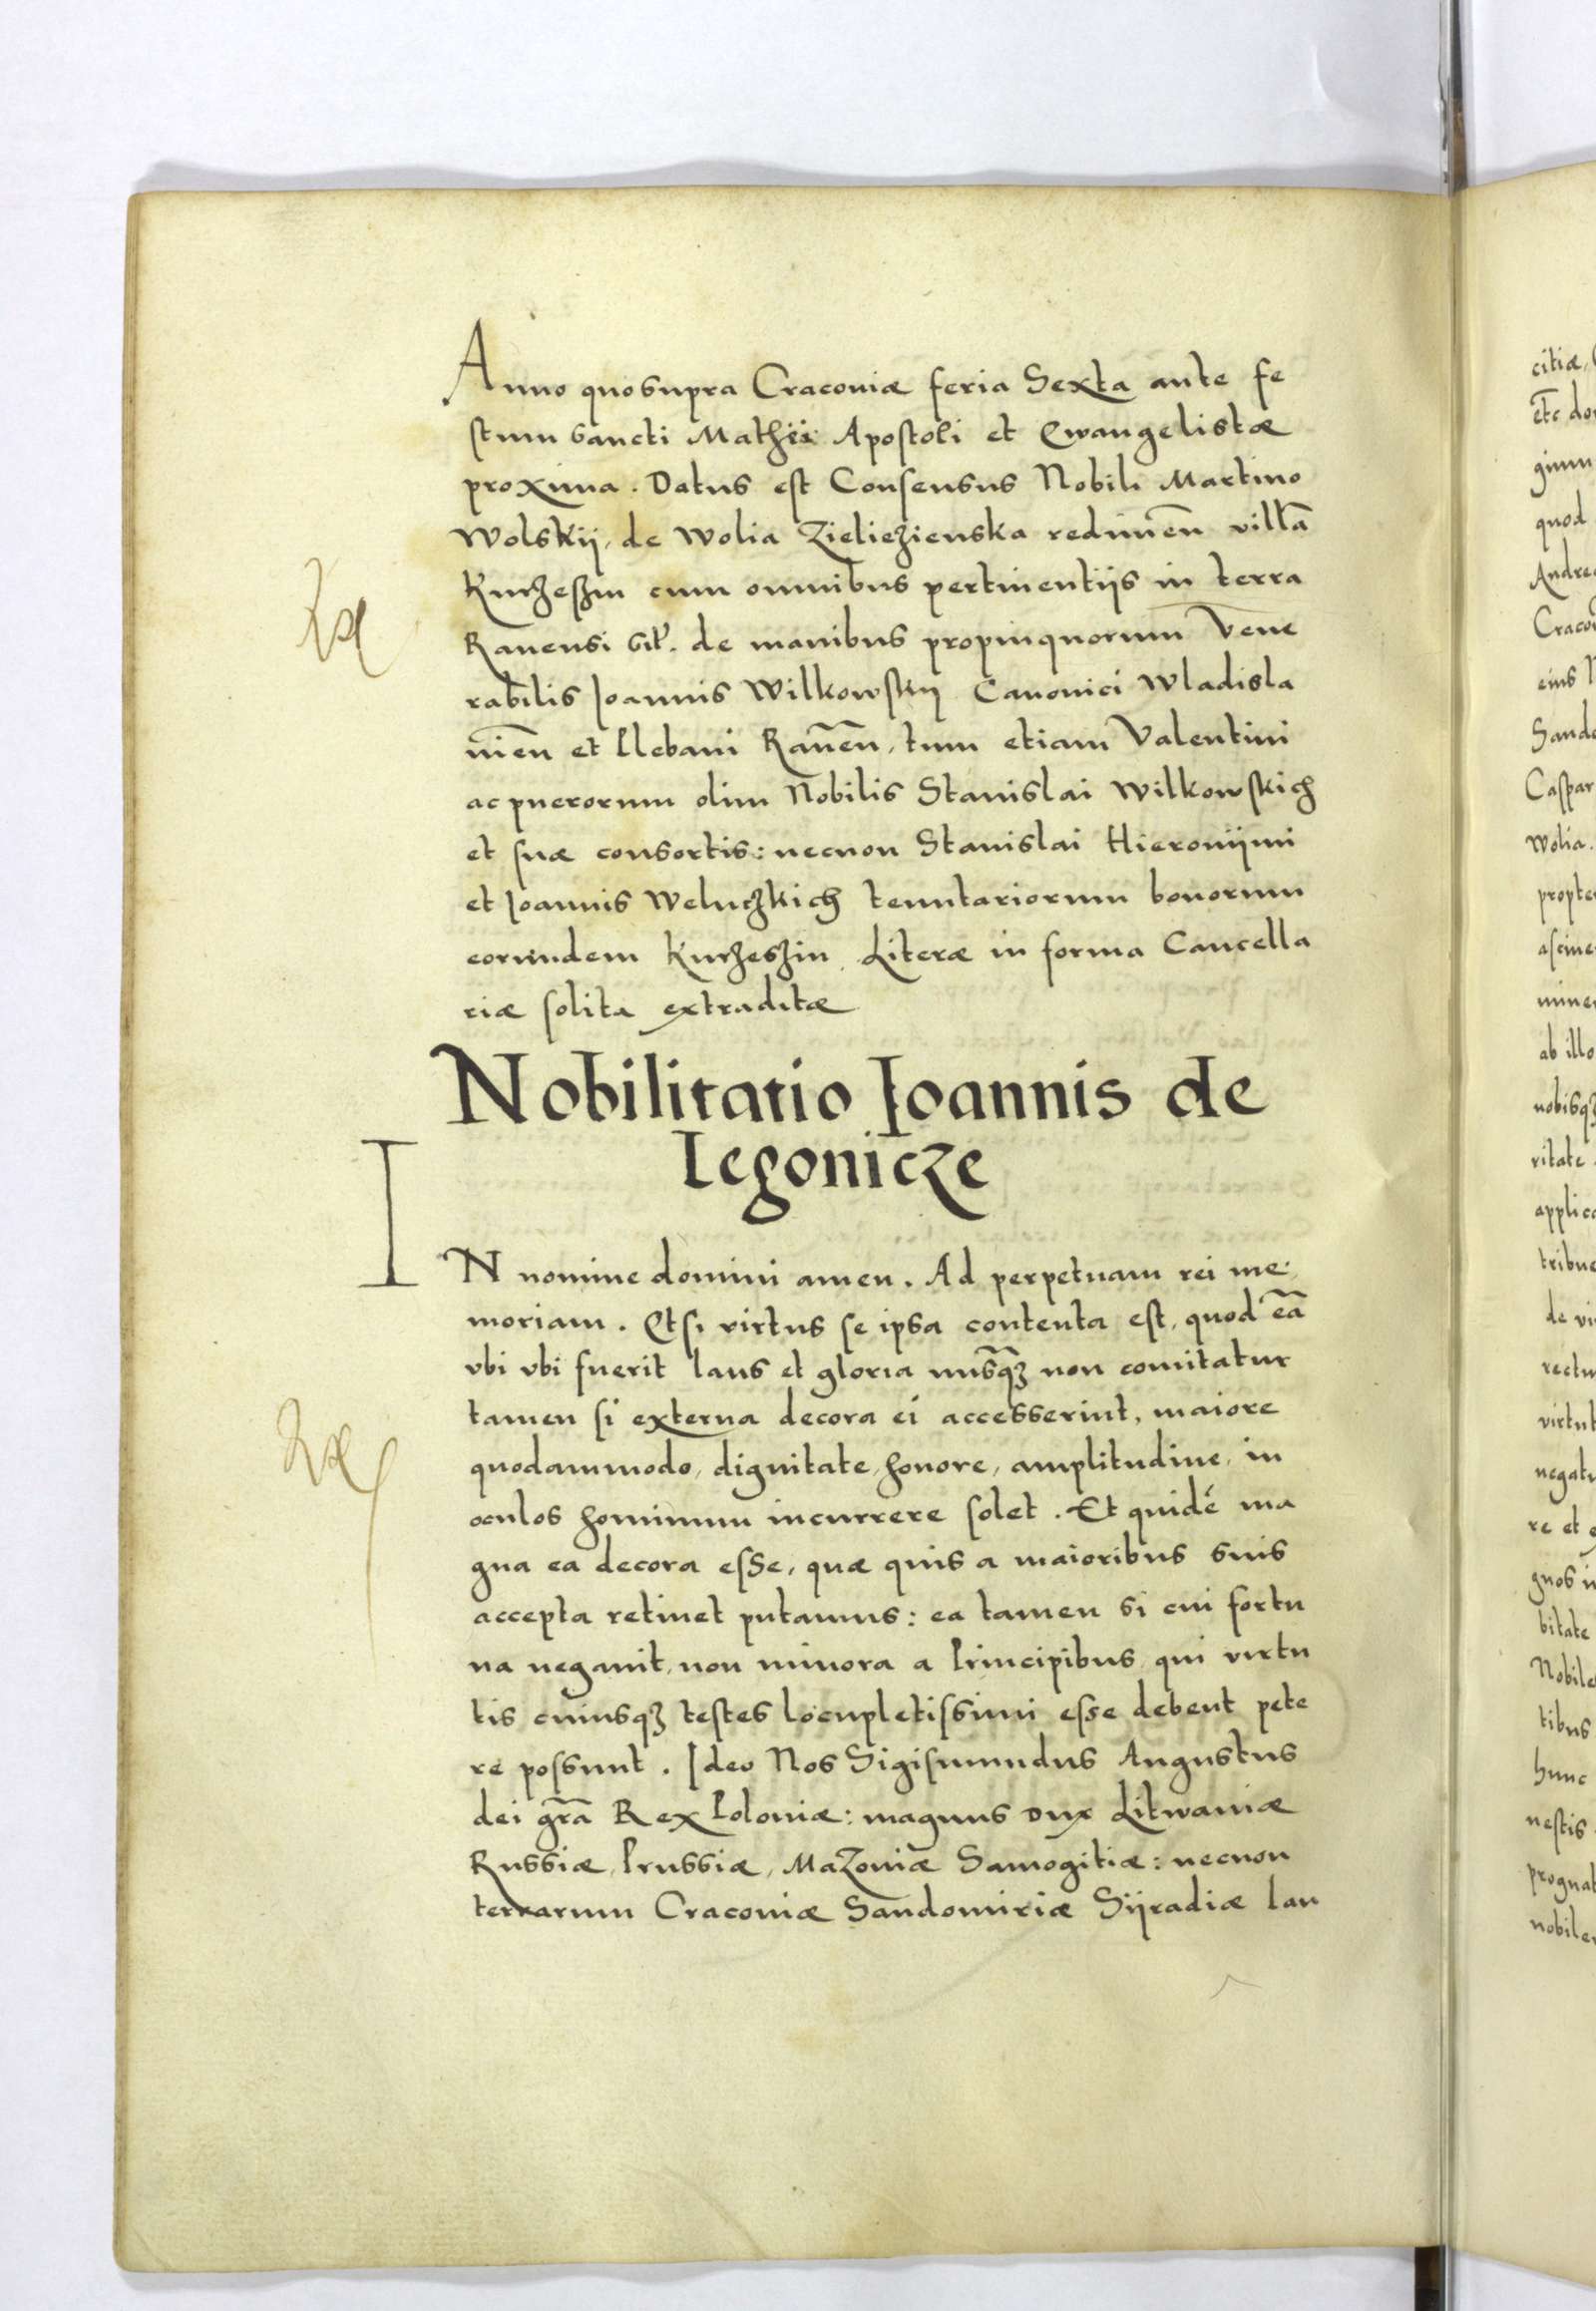 Anno quo supra Craconiæ feria Sexta ante fe
stum sancti Mathei Apostoli et Ewangelistæ
proxima. Datus est Consensus Nobili Martino
Wolskij, de Wolia Zieliezienska redimēn villā
Kurzeszin cum omnibus pertinentijs in terra
Ravensi sit̃. de manibus propinquorum Vene
rabilis Joannis Wilkowskij Canonici Wladisla
viēn et Plebani Ravēn, tum etiam Valentini
ac puerorum olim Nobilis Stanislai Wilkowskich
et suæ consortis: necnon Stanislai Hieronijmi
et Joannis Weluczkich tenutariorum bonorum
eorundem Kurzeszin. Literæ in forma Cancella
riæ solita extraditæ
Nobilitatio Joannis de
Iegonicze
IN nomine domini amen. Ad perpetuam rei me
moriam. Etsi virtus se ipsa contenta est, quod eā
vbi vbi fuerit laus et gloria nusq̃ꝫ non comitatur
tamen si externa decora ei accesserint, maiore
quodammodo, dignitate, honore, amplitudine, in
oculos hominum incurrere solet. Et quidē ma
gna ea decora esse, quæ quis a maioribus suis
accepta retinet putamus: ea tamen si cui fortu
na negavit, non minora a Principibus qui virtu
tis cuiusqꝫ testes locupletissimi esse debent pete
re possunt. Ideo Nos Sigismundus Augustus
dei gr̃a Rex Poloniæ: magnus Dux Litwaniæ
Russiæ, Prussiæ, Mazoviæ Samogitiæ: necnon
terrarum Cracoviæ Sandomiriæ Sijradiæ Lan
citiæ,
etc̃
quod
ab illo
tribue
hunc